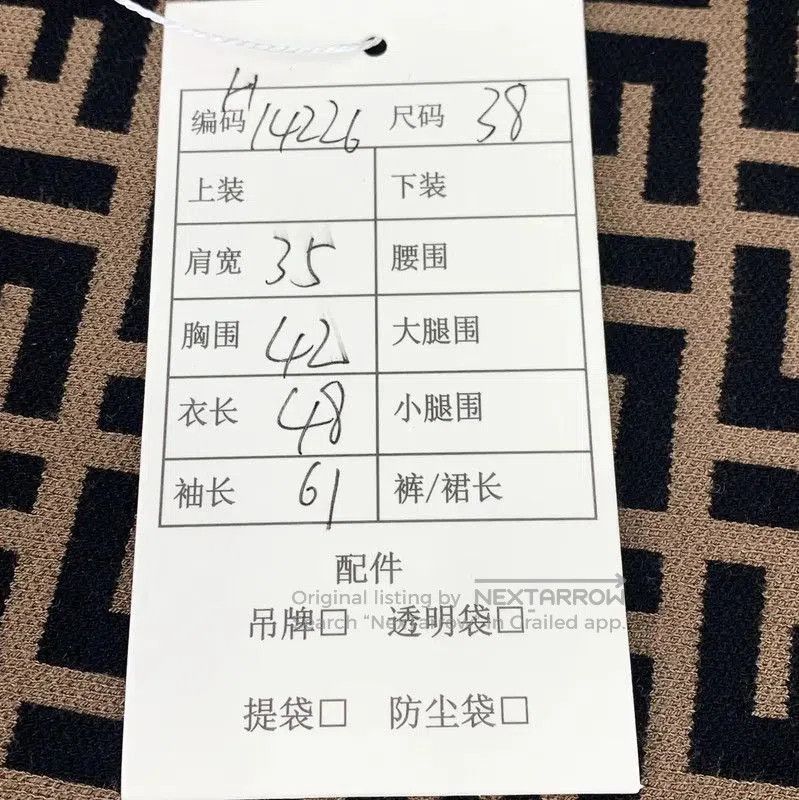 编码 H14226 尺码 38
上装 下装
肩宽 35 腰围
胸围 42 大腿围
衣长 48 小腿围
袖长 61 裤/裙长
配件
Original listing by NEXTARROW
吊牌□ 透明袋□
Search "Nextarrow" in Grailed app.
提袋□ 防尘袋□